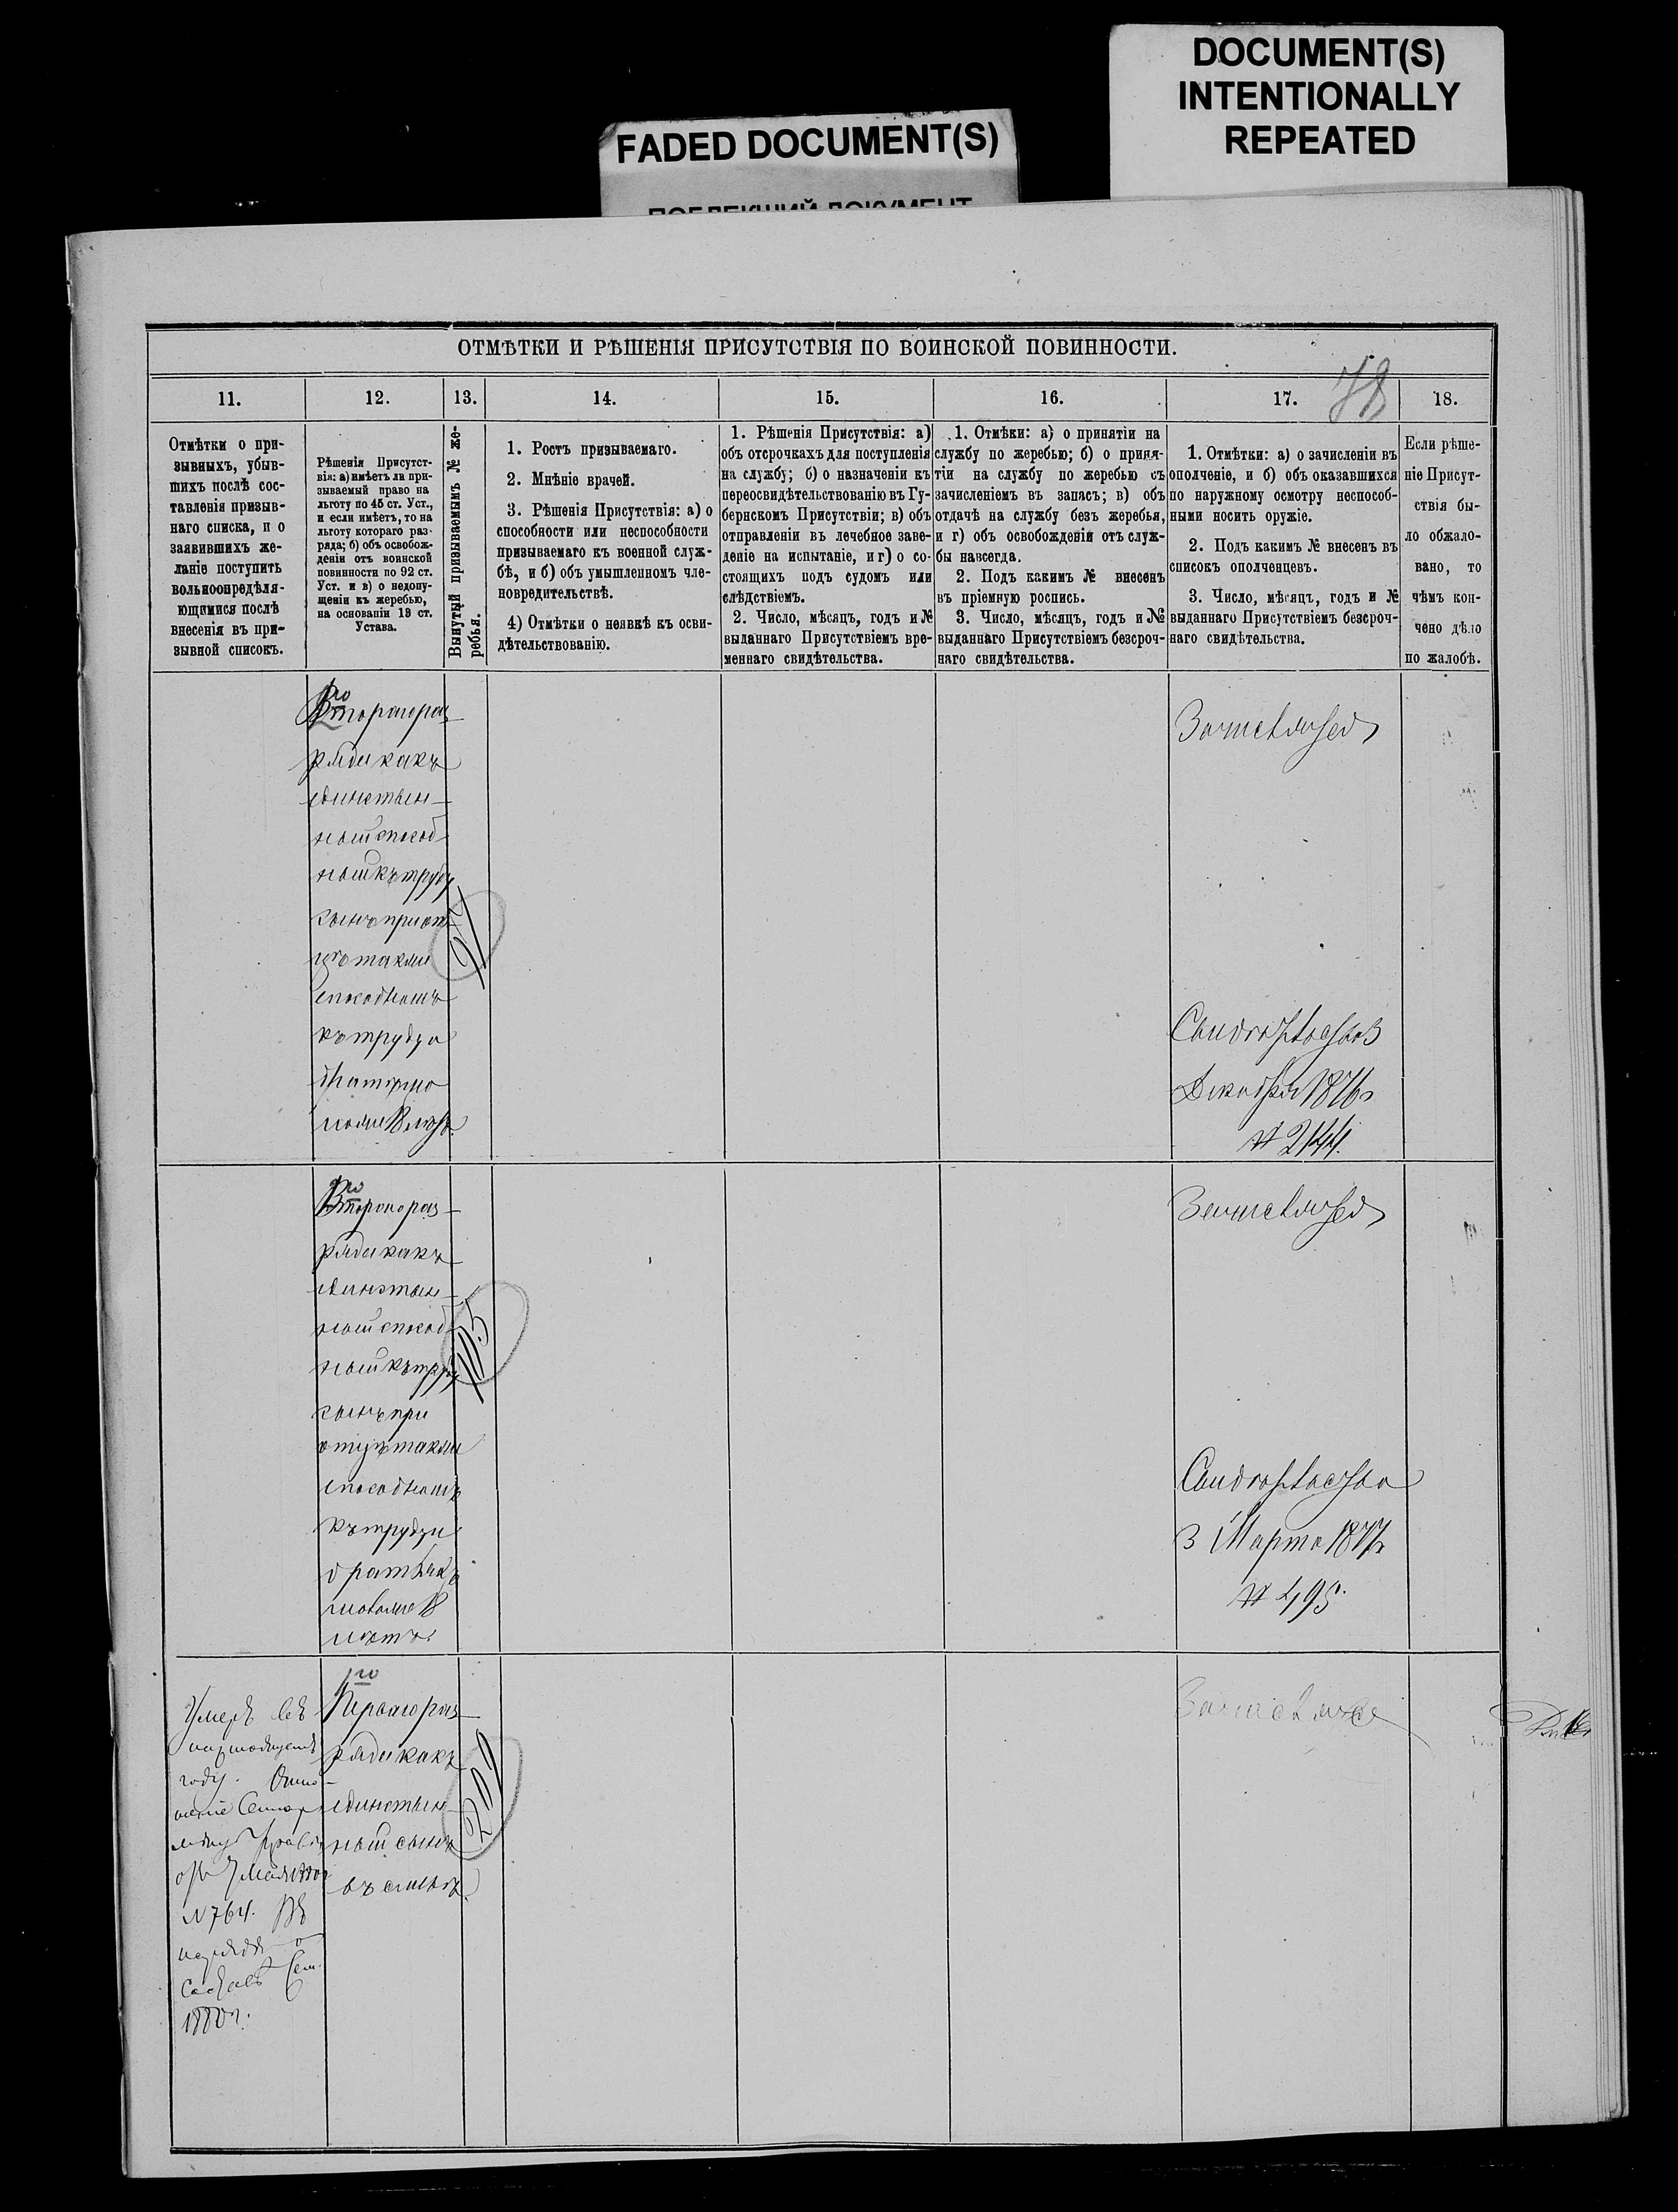 DOCUMENT(S)
INTENTIONALLY
REPEATED
FADED DOCUMENT(S)
ПОБЛЕКШИЙ ДОКУМЕНТ
ОТМѢТКИ И РѢШЕНІЯ ПРИСУТСТВІЯ ПО ВОИНСКОЙ ПОВИННОСТИ.
78
11.
12.
13.
14.
15.
16.
17.
18.
Отмѣтки о при-
зывныхъ, убыв-
шихъ послѣ сос-
тавленія призыв-
наго списка, и о
заявившихъ же-
ланіе поступить
вольноопредѣля-
ющимися послѣ
внесенія въ при-
зывной списокъ.
Рѣшенія Присутст-
вія: а) имѣетъ ли при-
зываемый право на
льготу по 45 ст. Уст.,
и если имѣетъ, то на
льготу котораго раз-
ряда; б) объ освобож-
деніи отъ воинской
повинности по 92 ст.
Уст. и в) о недопу-
щеніи къ жеребью,
на основаніи 13 ст.
Устава.
Вынутый призываемымъ № же-
ребья.
1. Ростъ призываемаго.
2. Мнѣніе врачей.
3. Рѣшенія Присутствія: а) о
способности или неспособности
призываемаго къ военной служ-
бѣ, и б) объ умышленномъ чле-
новредительствѣ.
4) Отмѣтки о неявкѣ къ осви-
дѣтельствованію.
1. Рѣшенія Присутствія: а)
объ отсрочкахъ для поступленія
на службу; б) о назначеніи къ
переосвидѣтельствованію въ Гу-
бернскомъ Присутствіи; в) объ
отправленіи въ лечебное заве-
деніе на испытаніе, и г) о со-
стоящихъ подъ судомъ или
слѣдствіемъ.
2. Число, мѣсяцъ, годъ и №
выданнаго Присутствіемъ вре-
меннаго свидѣтельства.
1. Отмѣки: а) о принятіи на
службу по жеребью; б) о приня-
тіи на службу по жеребью съ
зачисленіемъ въ запасъ; в) объ
отдачѣ на службу безъ жеребья,
и г) объ освобожденіи отъ служ-
бы навсегда.
2. Подъ какимъ № внесенъ
въ пріемную роспись.
3. Число, мѣсяцъ, годъ и №
выданнаго Присутствіемъ безсроч-
наго свидѣтельства.
1. Отмѣтки: а) о зачисленіи въ
ополченіе, и б) объ оказавшихся
по наружному осмотру неспособ-
ными носить оружіе.
2. Подъ какимъ № внесенъ въ
списокъ ополченцевъ.
3. Число, мѣсяцъ, годъ и №
выданнаго Присутствіемъ безсроч-
наго свидѣтельства.
Если рѣше-
ніе Присут-
ствія бы-
ло обжало-
вано, то
чѣмъ кон-
чено дѣло
по жалобѣ.
Втораго раз-
ряда какъ
единствен-
ный способ-
ный къ труду
сынъ при от-
цѣ также
способномъ
къ труду и
моложе 18 лѣтъ.
97
Зачисленъ
Свидѣтельство 3
Декабря 1876
№ 2144.
Втораго раз-
ряда какъ
единствен-
ный способ-
ный къ труду
сынъ при
отцѣ также
способномъ
къ труду и
братьяхъ
моложе 18
лѣтъ.
105
Зачисленъ
Свидѣтельство
3 Марта 1877
№ 495.
Умеръ въ
году.
N 764. Въ
1880 г.
1го
Перваго раз-
ряда какъ
единствен-
ный сынъ
въ семьѣ.
209